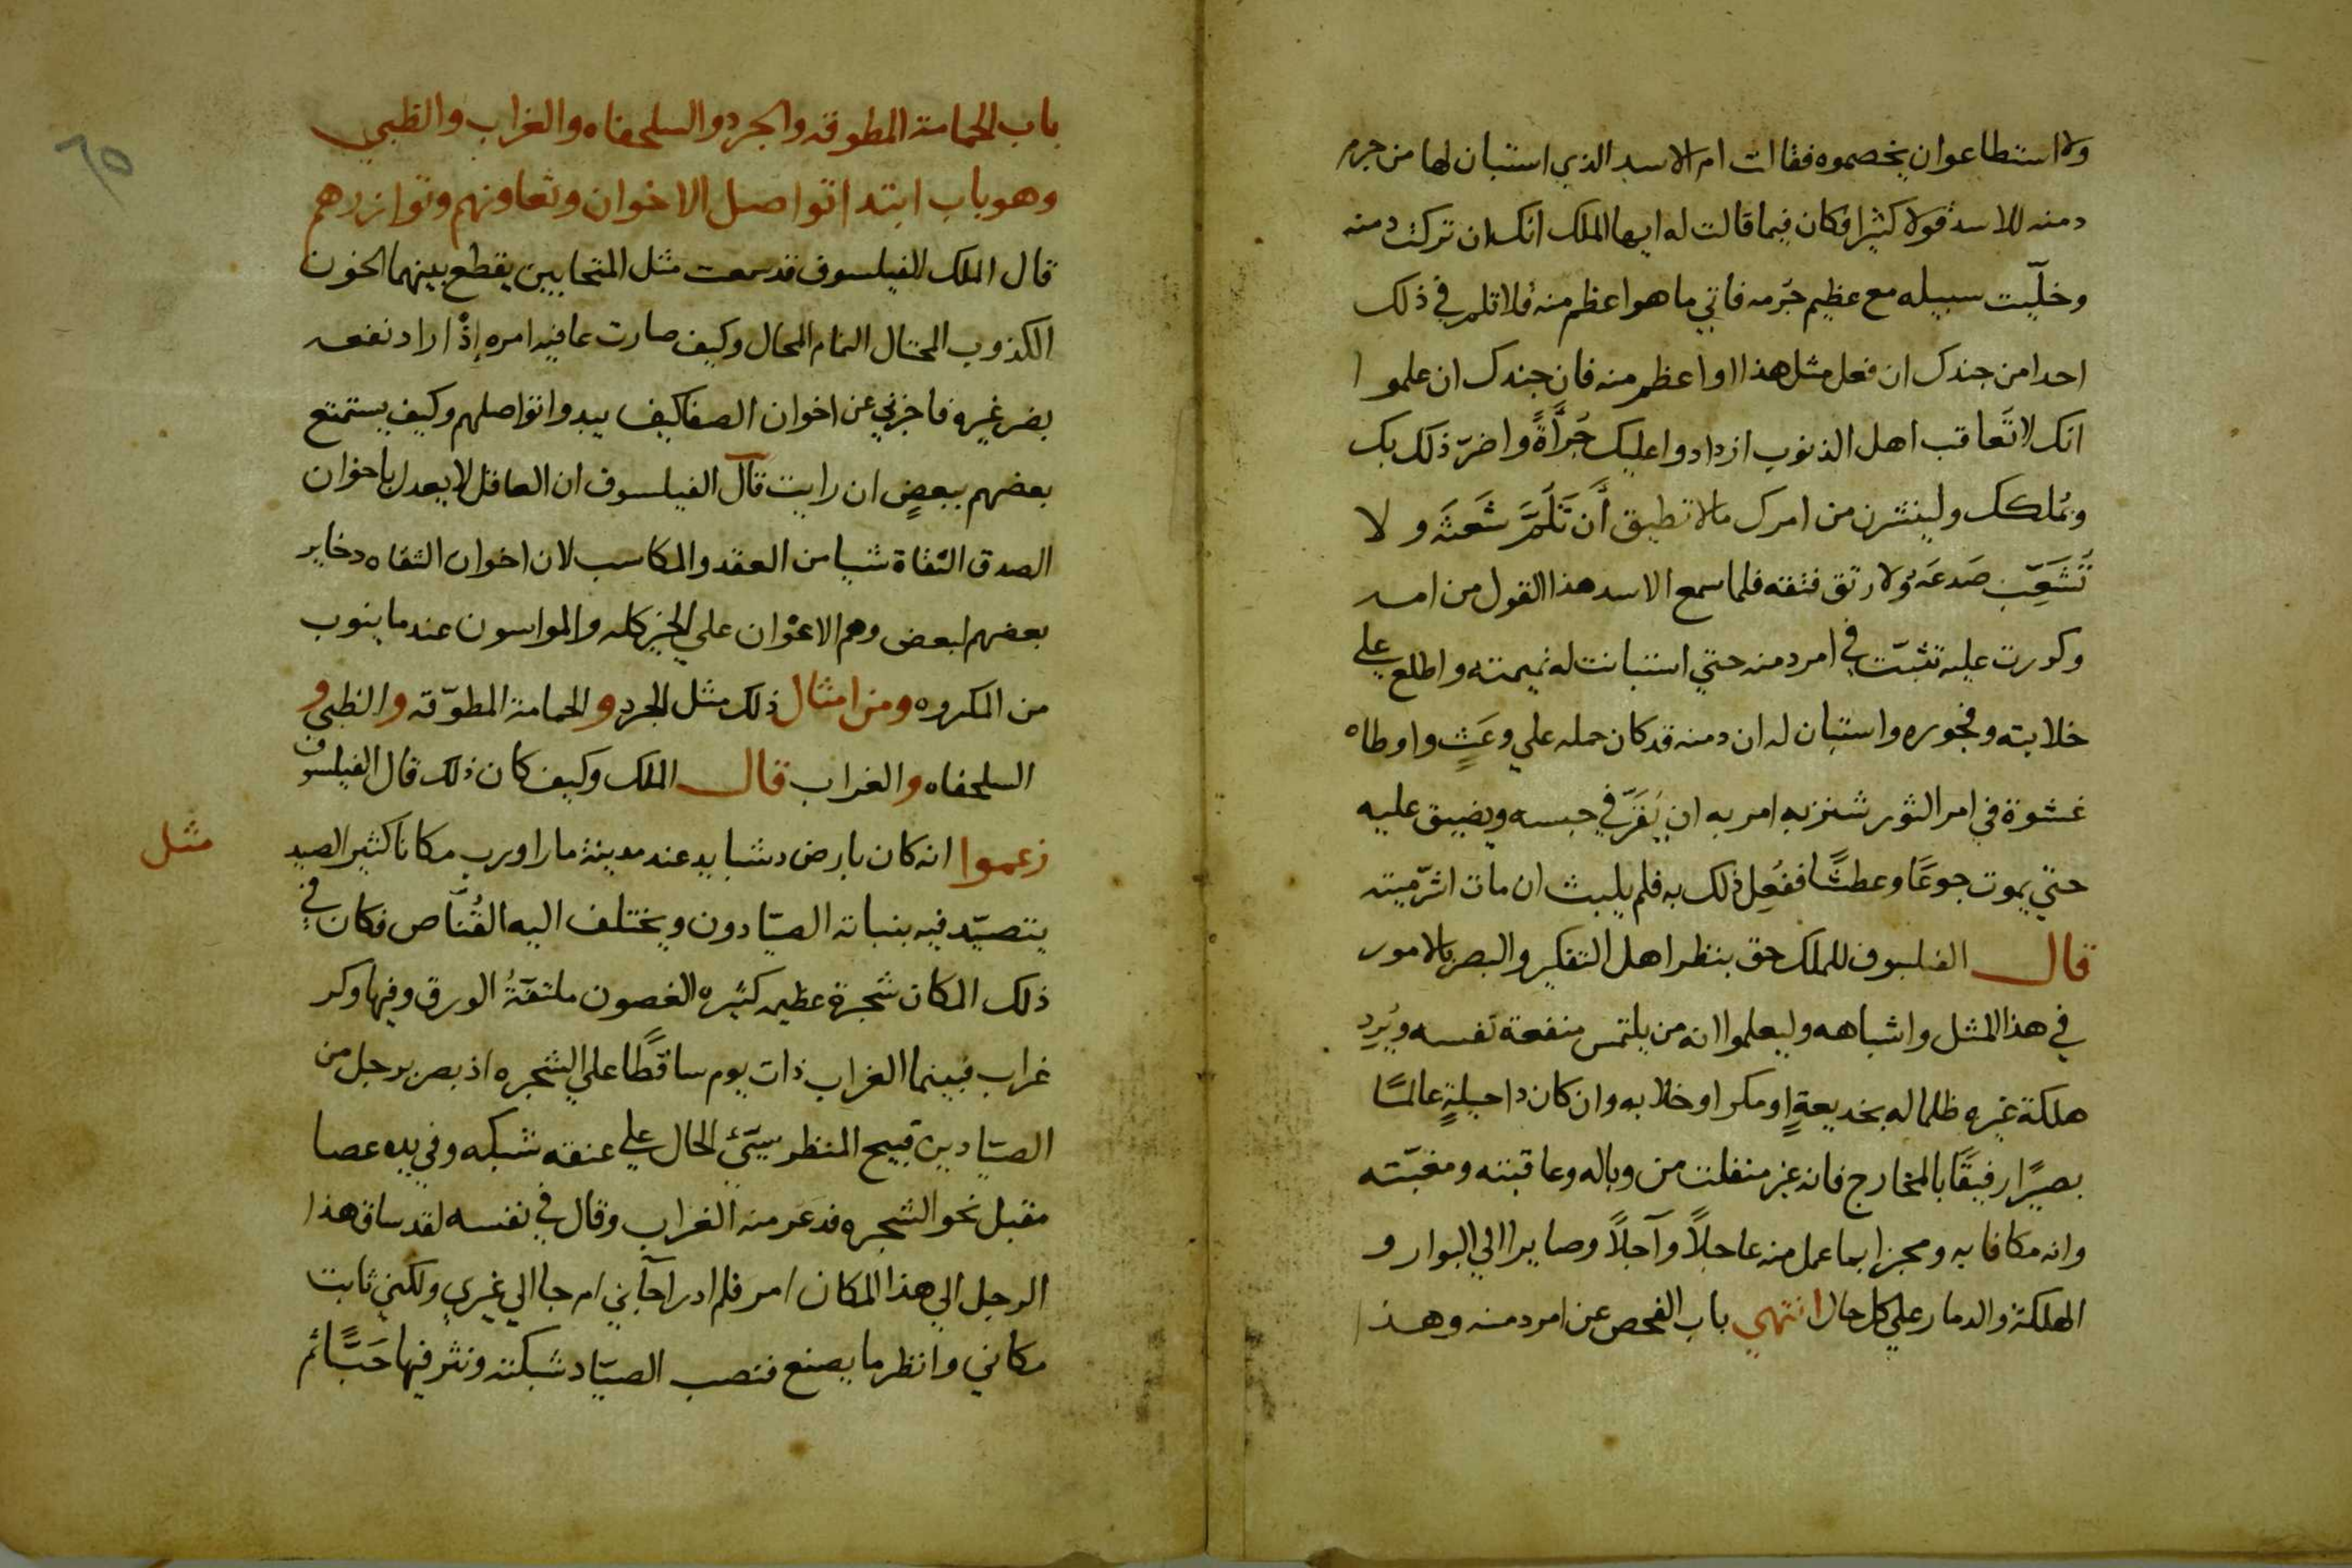 ولا استطاعوا ان يخصموه فقالت ام الاسد الذي استبان لها من جرم
دمنه للاسد قولا كثيرا فكان فيما قالت له ايها الملك انك ان تركت دمنه
وخلّيت سبيله مع عظيم جُرمه فاتي ما هو اعظم منه فلا تلم في ذلك
احدا من جندك ان فعل مثل هذا او اعظم منه فان جندك ان علموا
انك لا تعاقب اهل الذنوب ازدادوا عليك جُرأةً واضرّ ذلك بك
وبمُلكك ولينشرن من امرك مالا تطيق أن تَلُمَّ شَعثَه ولا
تَشعَب صَدعَه ولا رتق فتقه فلما سمع الاسد هذا القول من امه
وكررت عليه تثبّت في امر دمنه حتي استبانت له نميمته واطلع علي
خلابته وفجوره واستبان له ان دمنه قد كان حمله علي وعَثٍ واوطاه
غشوة في امر الثور شنزبه امر به ان يُقرّ في حبسه ويضيق عليه
حتي يموت جوعًا وعطشًا ففُعِل ذلك به فلم يلبث ان مات اشرّ ميته
قال الفيلسوف للملك حق ينظر اهل التفكير والبصر بالامور
في هذا المثل واشباهه وليعلموا انه من يلتمس منفعة نفسه ويُرِد
هلكة غيره ظلما له بخديعةٍ او مكر او خلابه وان كان ذا حيلةٍ عالمًا
بصيرًا رفيقًا بالمخارج فانه غير منفلت من وباله وعاقبته ومغبّته
وانه مكافا به ومجزا بما عمل منه عاجلاً وآجلاً وصايرا الي البوار و
الهلكة والدمار علي كل حال انتهي باب الفحص عن امر دمنه وهذا
٦٥
باب الحمامة المطوقه والجرد والسلحفاه والغراب والظبي
وهو باب ابتدا تواصل الاخوان وتعاونهم وتوازرهم
قال الملك للفيلسوف قد سمعت مثل المتحابين يقطع بينهما الخون
الكذوب المحتال النمام المحال وكيف صارت عاقبه امره إذْ اراد نفعه
بضر غيره فاخبرني عن اخوان الصفا كيف يبدوا تواصلهم وكيف يستمتع
بعضهم ببعضٍ ان رايت قال الفيلسوف ان العاقل لا يعدل باخوان
الصدق الثقاة شيا من العقد والمكاسب لان اخوان الثقاه دخاير
بعضهم لبعض وهم الاعْوان علي الخير كله والمواسون عند ما ينوب
من المكروه ومن امثال ذلك مثل الجرد والحمامة المطوّقه والظبي و
السلحفاه والغراب قال الملك وكيف كان ذلك قال الفيلسوف
مثل
زعموا انه كان بارض دشبايد عند مدينة ماراورب مكانا كثير الصيد
يتصيّد فيه بنباته الصيّادون ويختلف اليه القُنّاص فكان في
ذلك المكان شجرة عظيمه كثيره الغصون ملتفّةُ الورق وفيها وكر
غراب فبينما الغراب ذات يوم ساقطًا علي الشجره اذ بصر برجل من
الصيّادين قبيح المنظر سيّئ الحال علي عنقه شبكه وفي يده عصا
مقبل نحو الشجره فدعر منه الغراب وقال في نفسه لقد ساق هذا
الرجل الي هذا المكان امر فلم ادر اجابني ام جا الي غيري ولكني ثابت
مكاني وانظر ما يصنع فنصب الصيّاد شبكته ونثر فيها حَبًّا ثم